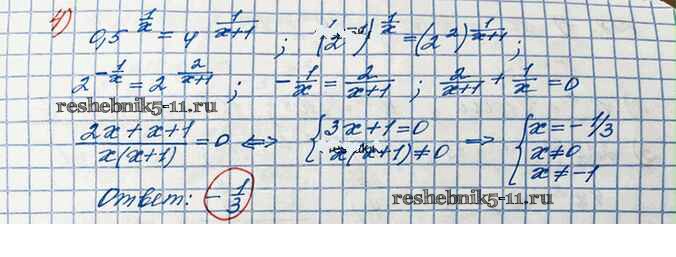 4) 0,5^(1/x) = 4^(1/(x+1)) ; (2^(-1))^(1/x) = (2^2)^(1/(x+1)) ;
2^(-1/x) = 2^(2/(x+1)) ; -1/x = 2/(x+1) ; 2/(x+1) + 1/x = 0
reshebnik5-11.ru
(2x+x+1)/(x(x+1)) = 0 <=> { 3x+1=0 => { x=-1/3
x(x+1)≠0 x≠0
x≠-1
Ответ: -1/3
reshebnik5-11.ru